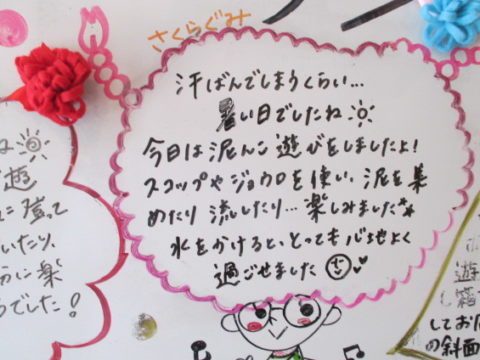 さくらぐみ
汗ばんでしまうくらい…
暑い日でしたね
今日は泥んこ遊びをしましたよ!
スコップやジョウロを使い、泥を集
めたり流したり…楽しみました
水をかけるととっても心地よく
過ごせました
ね
遊
に登って
いたり、
に楽
でした!
遊
し霜
してお
の斜面